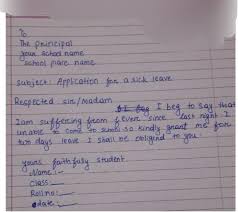 To
The principal
your school name
school place name
subject: Application for a sick leave
Respected sir/madam
I beg to say that
I am suffering from fever since last night I
unable to come to school so kindly grant me for
two days leave I shall be obligend to you.
yours faithfuly student
Name:-
Class:
Rollno:-
date:-